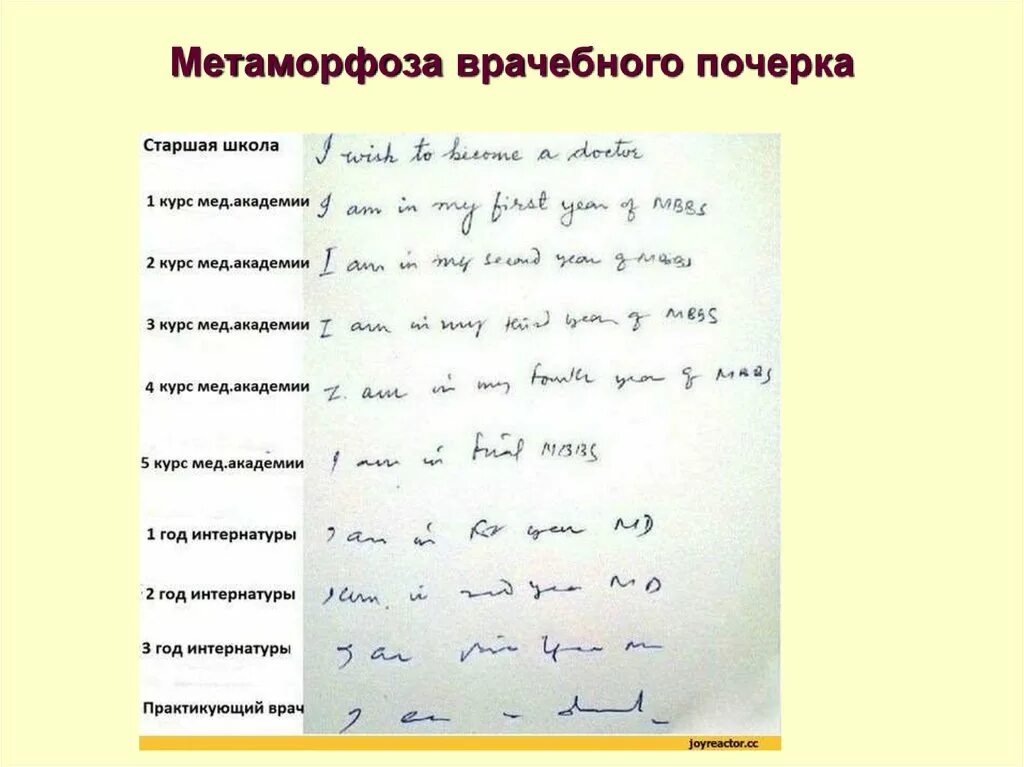 Метаморфоза врачебного почерка
Старшая школа I wish to become a doctor
1 курс мед.академии I am in my first year of MBBS
2 курс мед.академии I am in my second year of MBBS
3 курс мед.академии I am in my third year of MBBS
4 курс мед.академии I am in my fourth year of MBBS
5 курс мед.академии I am in final MBBS
1 год интернатуры I am in year MD
2 год интернатуры I am in 2nd year MD
3 год интернатуры I am year
Практикующий врач I am
joyreactor.cc